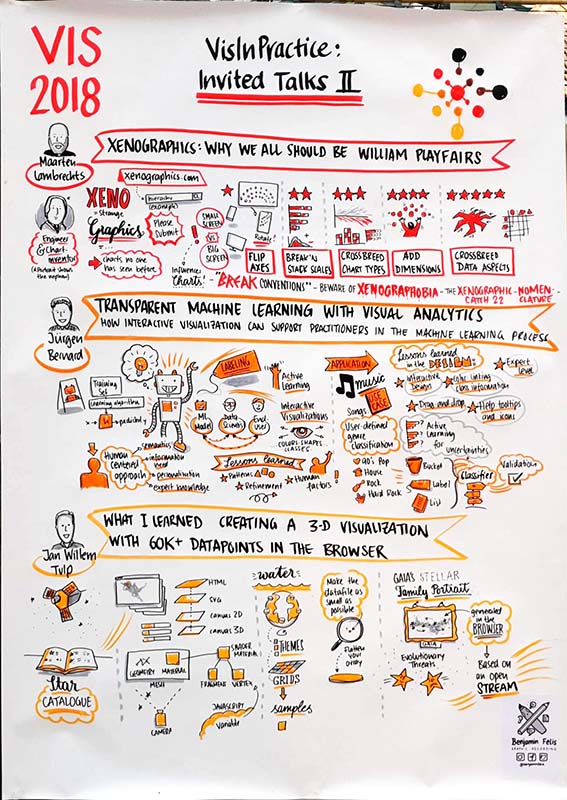 VIS
2018
VisInPractice:
Invited Talks II
Maarten
Lambrechts
XENOGRAPHICS: WHY WE ALL SHOULD BE WILLIAM PLAYFAIRS
xenographics.com
XENO
= Strange
Graphics
→ charts no one
has seen before
Engineer
& Chart-
inventor
Please
Submit
SMALL
SCREEN
VS
BIG
SCREEN
Rotate
FLIP
AXES
BREAK'N
STACK SCALES
CROSSBREED
CHART TYPES
ADD
DIMENSIONS
CROSSBREED
DATA ASPECTS
Influence
Charts'
- "BREAK CONVENTIONS" - BEWARE OF XENOGRAPHOBIA - THE XENOGRAPHIC-NOMEN-
CATCH 22
CLATURE
Jürgen
Bernard
TRANSPARENT MACHINE LEARNING WITH VISUAL ANALYTICS
HOW INTERACTIVE VISUALIZATION CAN SUPPORT PRACTITIONERS IN THE MACHINE LEARNING PROCESS
Training
Set
Learning algorithm
x → → predicted y
Human
centered
approach
semantics
information need
personalization
expert knowledge
LABELING
Active
Learning
ML
Model
Data
Scientist
End
User
Interactive
Visualizations
COLORS SHAPES
CLASSES
Lessons learned
Patterns
Refinement
Human
factors!
APPLICATION
music
Songs
USE
CASE
User-defined
genre
classification
80's Pop
House
Rock
Hard Rock
Lessons learned
in the DESIGN:
Interactive
Design
Color linking
class information
Expert
level
Drag and drop
Help tooltips
and icons
Active
Learning
for
uncertainties
Bucket
Label
List
Classifier
Validation
Jan Willem
Tulp
WHAT I LEARNED CREATING A 3-D VISUALIZATION
WITH 60K+ DATAPOINTS IN THE BROWSER
Star
CATALOGUE
HTML
SVG
canvas 2D
canvas 3D
GEOMETRY MATERIAL
MESH
CAMERA
SHADER
MATERIAL
FRAGMENT VERTEX
JAVASCRIPT
Variable
water
THEMES
GRIDS
samples
Make the
datafile as
small as
possible
Flatten
your
array
GAIA'S STELLAR
Family Portrait
GAIA
Evolutionary
Threats
generated
in the
BROWSER
Based on
an open
STREAM
Benjamin Felis
GRAPHIC RECORDING
@benjaminfelis